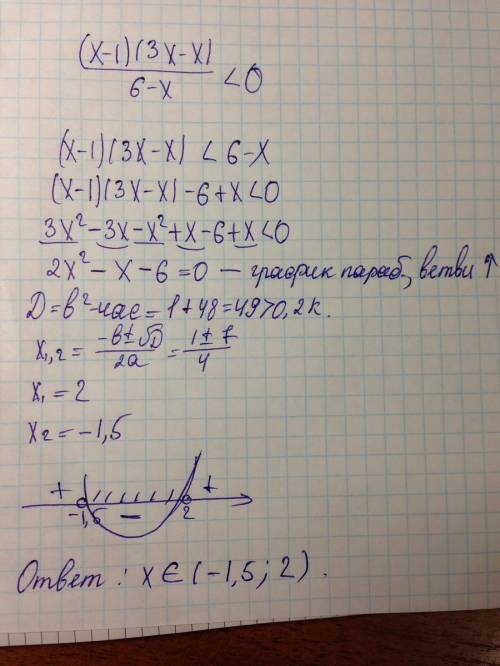 (x-1)(3x-x)
6-x <0
(x-1)(3x-x) < 6-x
(x-1)(3x-x) -6+x<0
3x²-3x-x²+x-6+x<0
2x²-x-6=0 — график параб, ветви ↑
D=в²-4ас=1+48=49>0, 2к.
x₁,₂= -в±√D / 2a = 1±7 / 4
x₁=2
x₂=-1,5
+ - +
-1,5 2
Ответ: x∈(-1,5; 2).